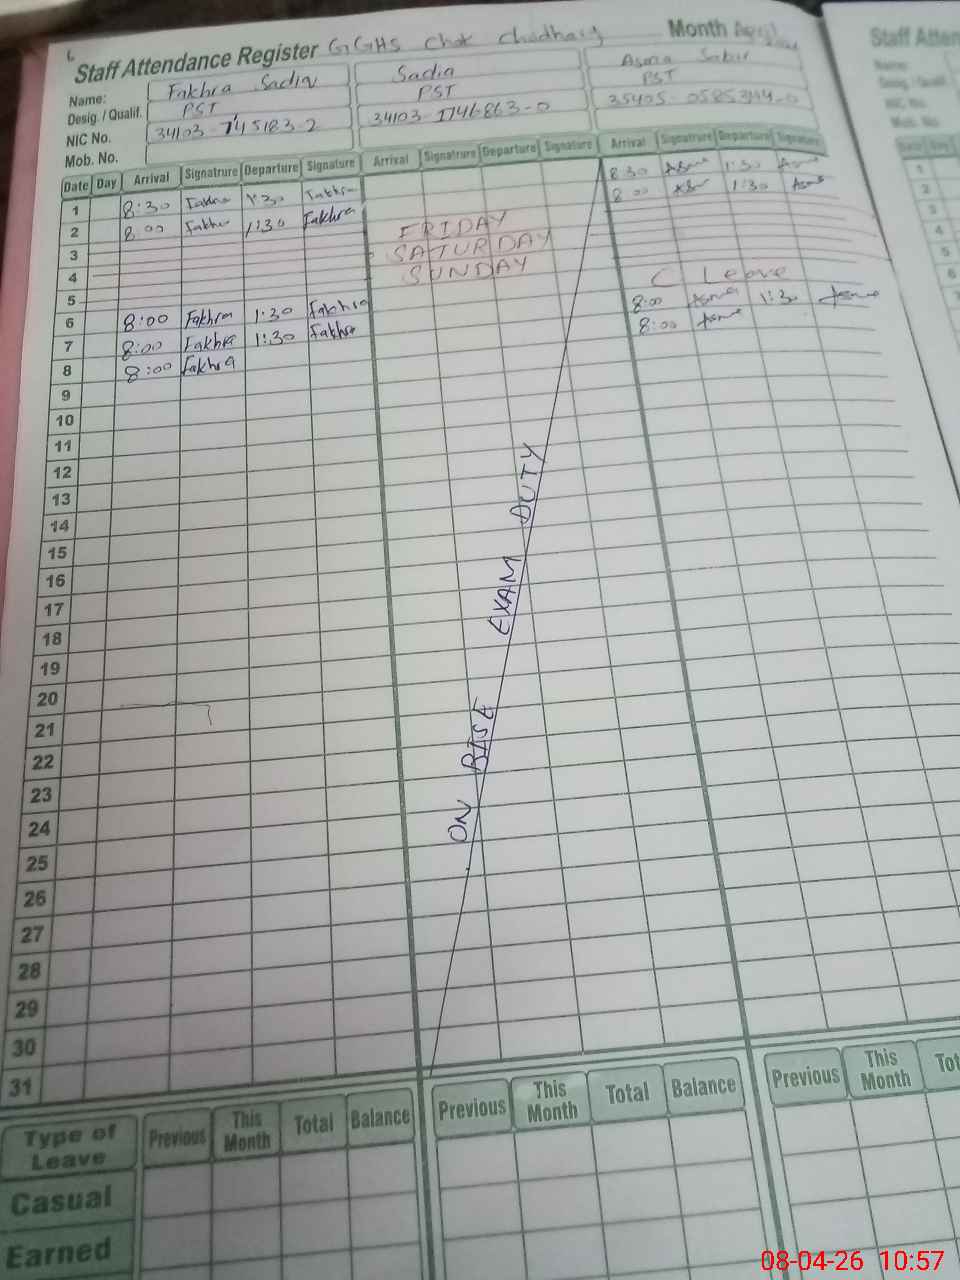 Staff Attendance Register GGHS Chak Chadhary Month April
Name: Fakhra Sadiq Sadia Asma Sabir
Desig. / Qualif. PST PST PST
NIC No. 34103-7451183-2 34103-1746863-0
Mob. No.
Date Day Arrival Signatrure Departure Signature Arrival Signatrure Departure Signature Arrival Signatrure Departure Signature
1 8:30 Fakhra 1:30 Fakhra 8:30 Asma 1:30 Asma
2 8:00 Fakhra 1:30 Fakhra 8:00 1:30 Asma
3 FRIDAY
4 SATURDAY
5 SUNDAY
6 8:00 Fakhra 1:30 Fakhra C Leave
7 8:00 Fakhra 1:30 Fakhra 8:00 Asma 1:30 Asma
8 8:00 Fakhra 8:00 Asma
9
10
11
12
13
14
15
16
17
18
19
20
21
22
23
24
25
26
27
28
29
30
31
ON BISE EXAM DUTY
Type of Leave Previous This Month Total Balance Previous This Month Total Balance Previous This Month
Casual
Earned
Staff Atten
Name:
Desig. / Qualif.
NIC No.
Mob. No.
Date Day
1
2
3
4
5
08-04-26 10:57